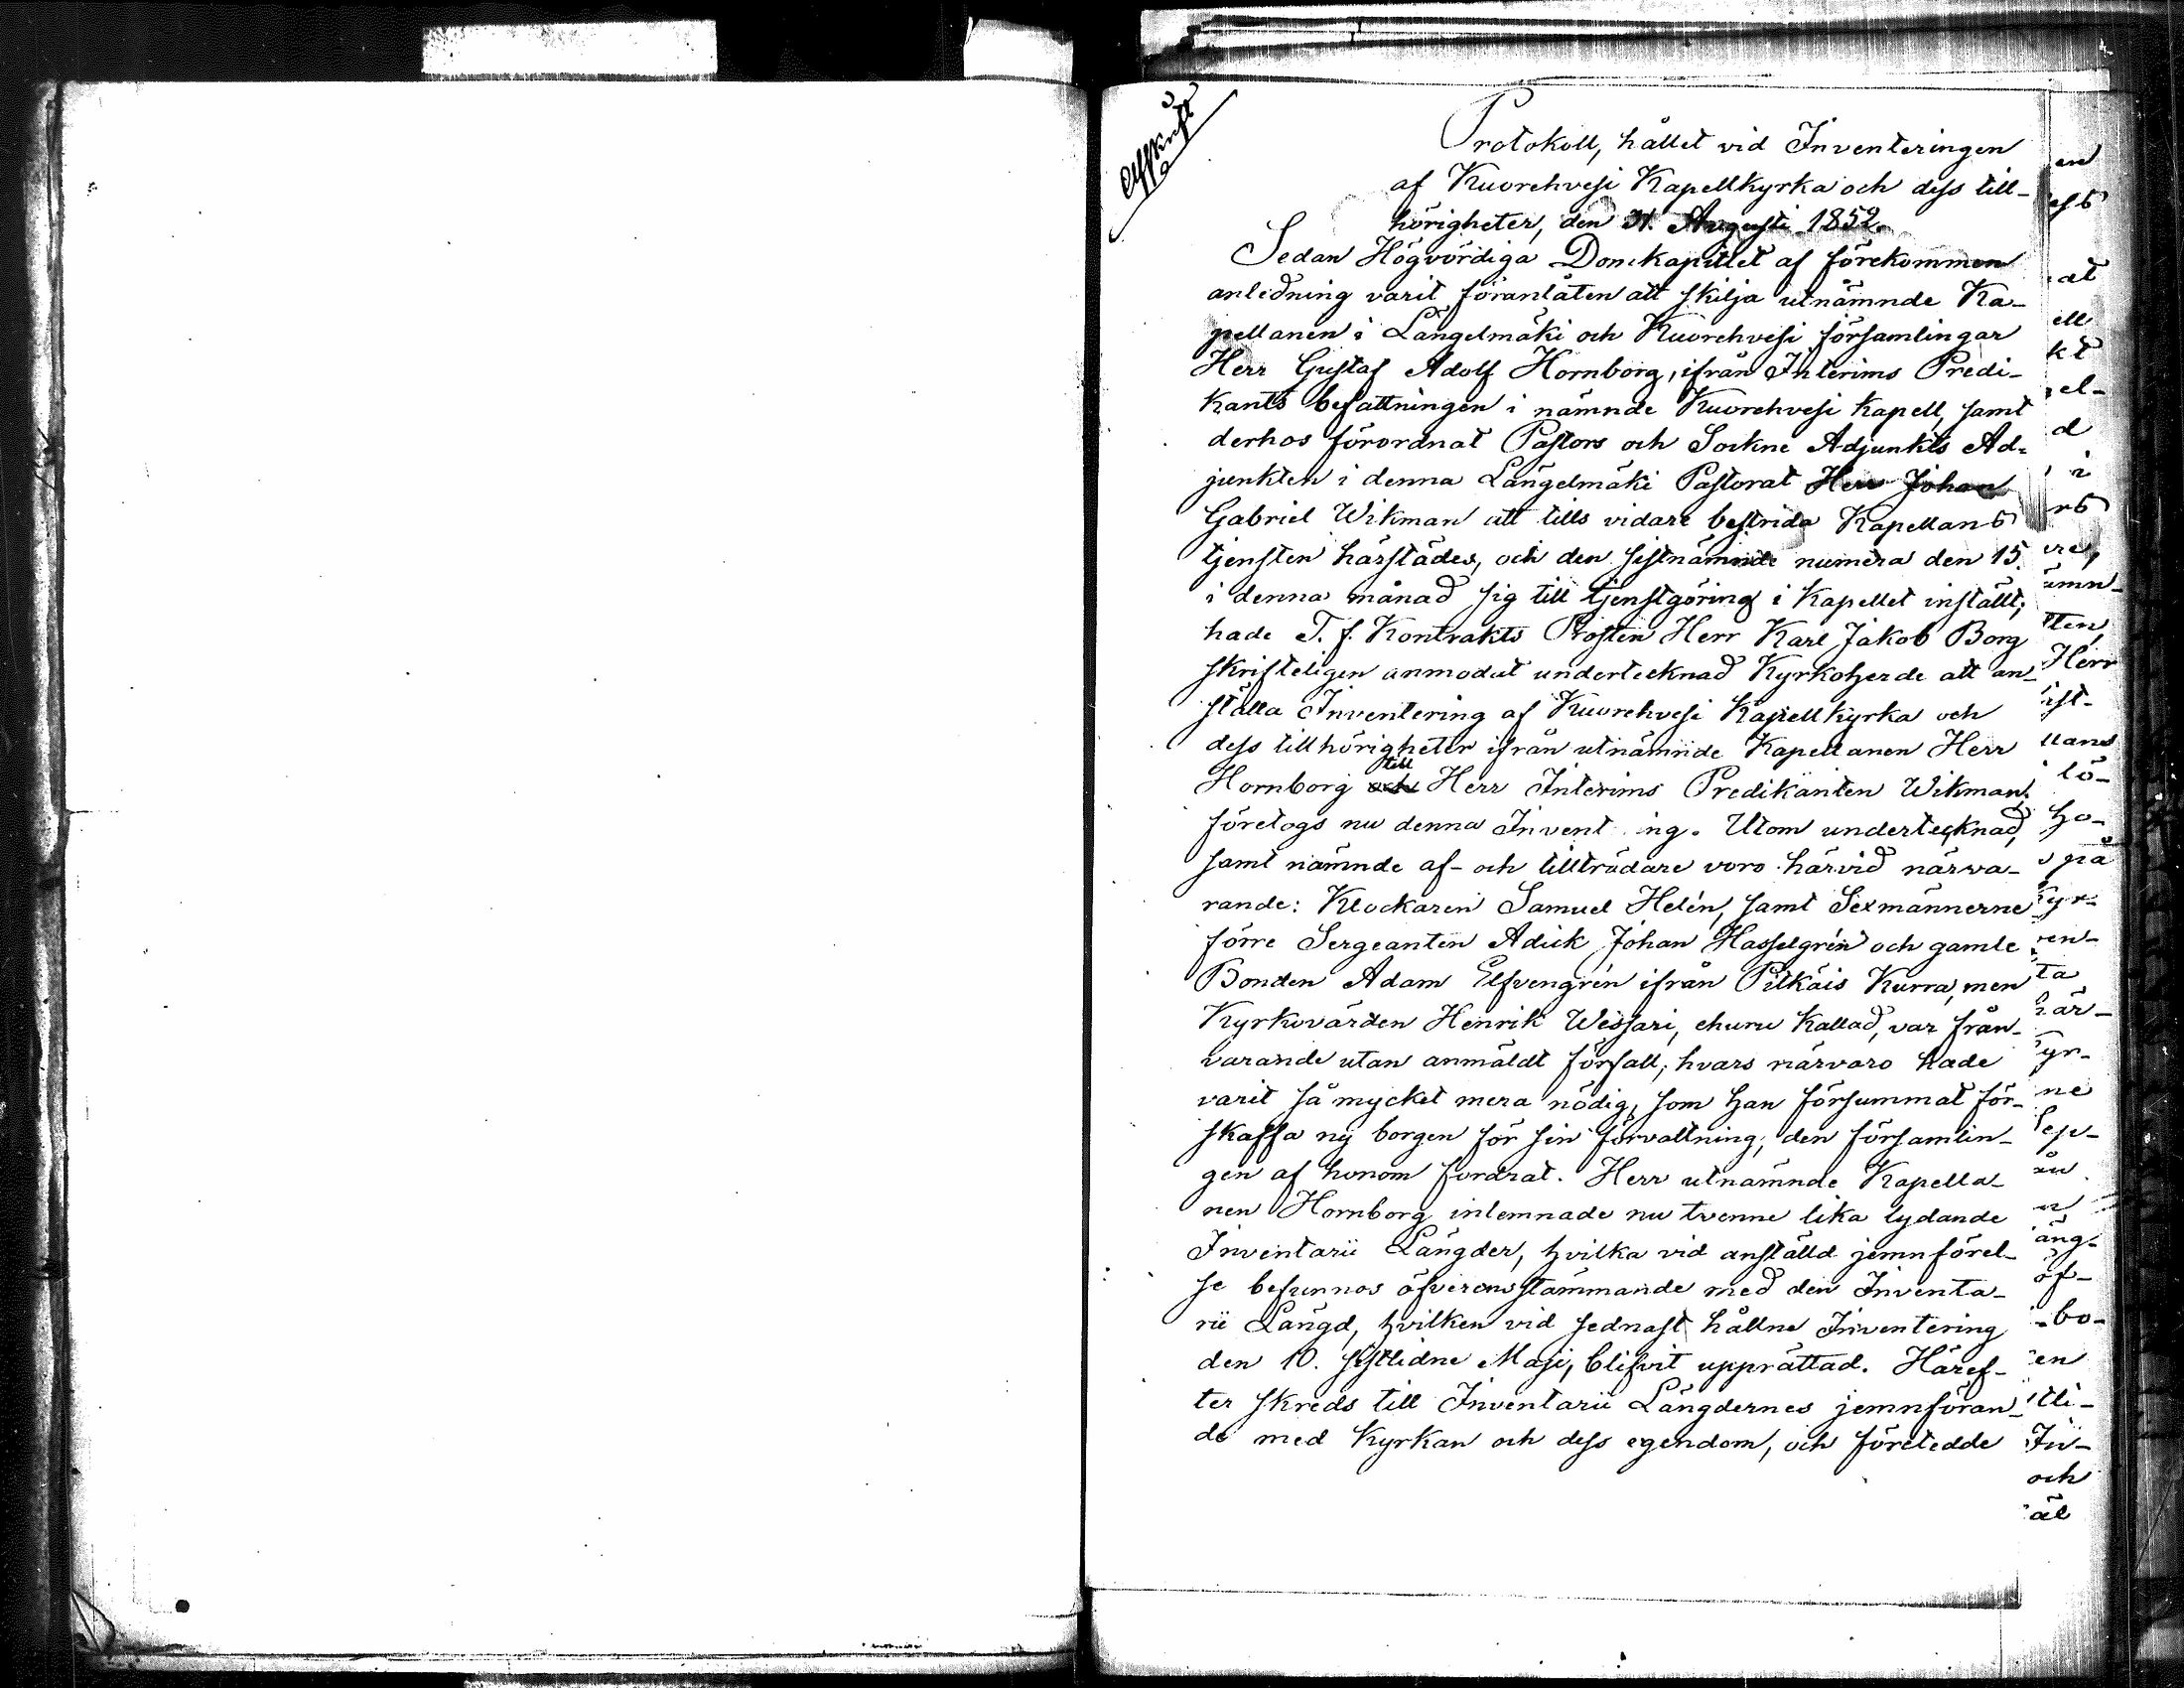 Afskrift
Protokoll, hållet vid Inventeringen
af Kuorehvesi Kapellkyrka och dess till-
hörigheter, den 31. Augusti 1852.
Sedan Högvördiga Domkapitlet af förekommen
anledning varit föranlåten att skilja utnämnde Ka-
pellanen i Längelmäki och Kuorehvesi församlingar
Herr Gustaf Adolf Hornborg, ifrån Interims Predi-
kants befattningen i nämnde Kuorehvesi Kapell, samt
derhos förordnat Pastors och Sockne Adjunkts Ad-
junkten i denna Längelmäki Pastorat Herr Johan
Gabriel Wikman att tills vidare bestrida Kapellans
tjensten härstädes, och den sistnämnde numera den 15.
i denna månad sig till tjenstgöring i Kapellet inställt;
hade T. f. Kontrakts Prosten Herr Karl Jakob Borg
skrifteligen anmodat undertecknad Kyrkoherde att an-
ställa Inventering af Kuorehvesi Kapellkyrka och
dess tillhörigheter ifrån utnämnde Kapellanen Herr
Hornborg till Herr Interims Predikanten Wikman;
företogs nu denna Invent ing. Utom undertecknad,
samt nämnde af- och tillträdare voro härvid närva-
rande: Klockaren Samuel Helén, samt Sexmännerne
förre Sergeanten Adiik Johan Hasselgrén och gamle
Bonden Adam Elfvengrén ifrån Pitkäis Kurra, men
Kyrkovärden Henrik Wessari, ehuru kallad, var från-
varande utan anmäldt förfall; hvars närvaro hade
varit så mycket mera nödig, som han försummat för-
skaffa ny borgen för sin förvaltning, den församlin-
gen af honom fordrat. Herr utnämnde Kapella-
nen Hornborg inlemnade nu tvenne lika lydande
Inventarii Längder, hvilka vid anställd jemnförel-
se befunnos öfverensstämmande med den Inventa-
rii Längd, hvilken vid sednast hållne Inventering
den 10. sistlidne Maji, blifvit upprättad. Häref-
ter skreds till Inventarii Längdernes jemnföran-
de med Kyrkan och dess egendom, och företedde